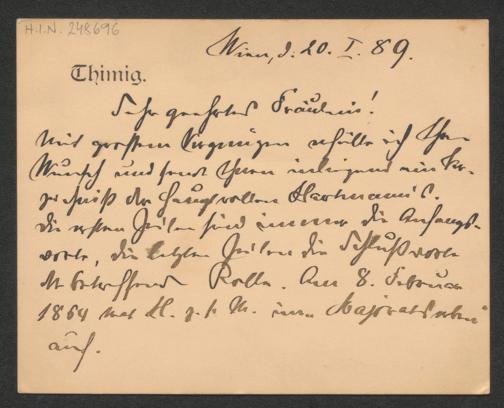 H.I.N. 248696
Wien, d. 20. I. 89.
Thimig.
Sehr geehrtes Fräulein!
Mit großem Vergnügen erfülle ich Ihren
Wunsch und sende Ihnen inliegend ein Ver-
zeichniß der Hauptrollen Hartmann's.
Die ersten Zeilen sind immer die Anfangs-
worte, die letzten Zeilen die Schlußworte
der betreffenden Rolle. Am 8. Februar
1864 trat H. z. 1. M. im "Majoratserben"
auf.